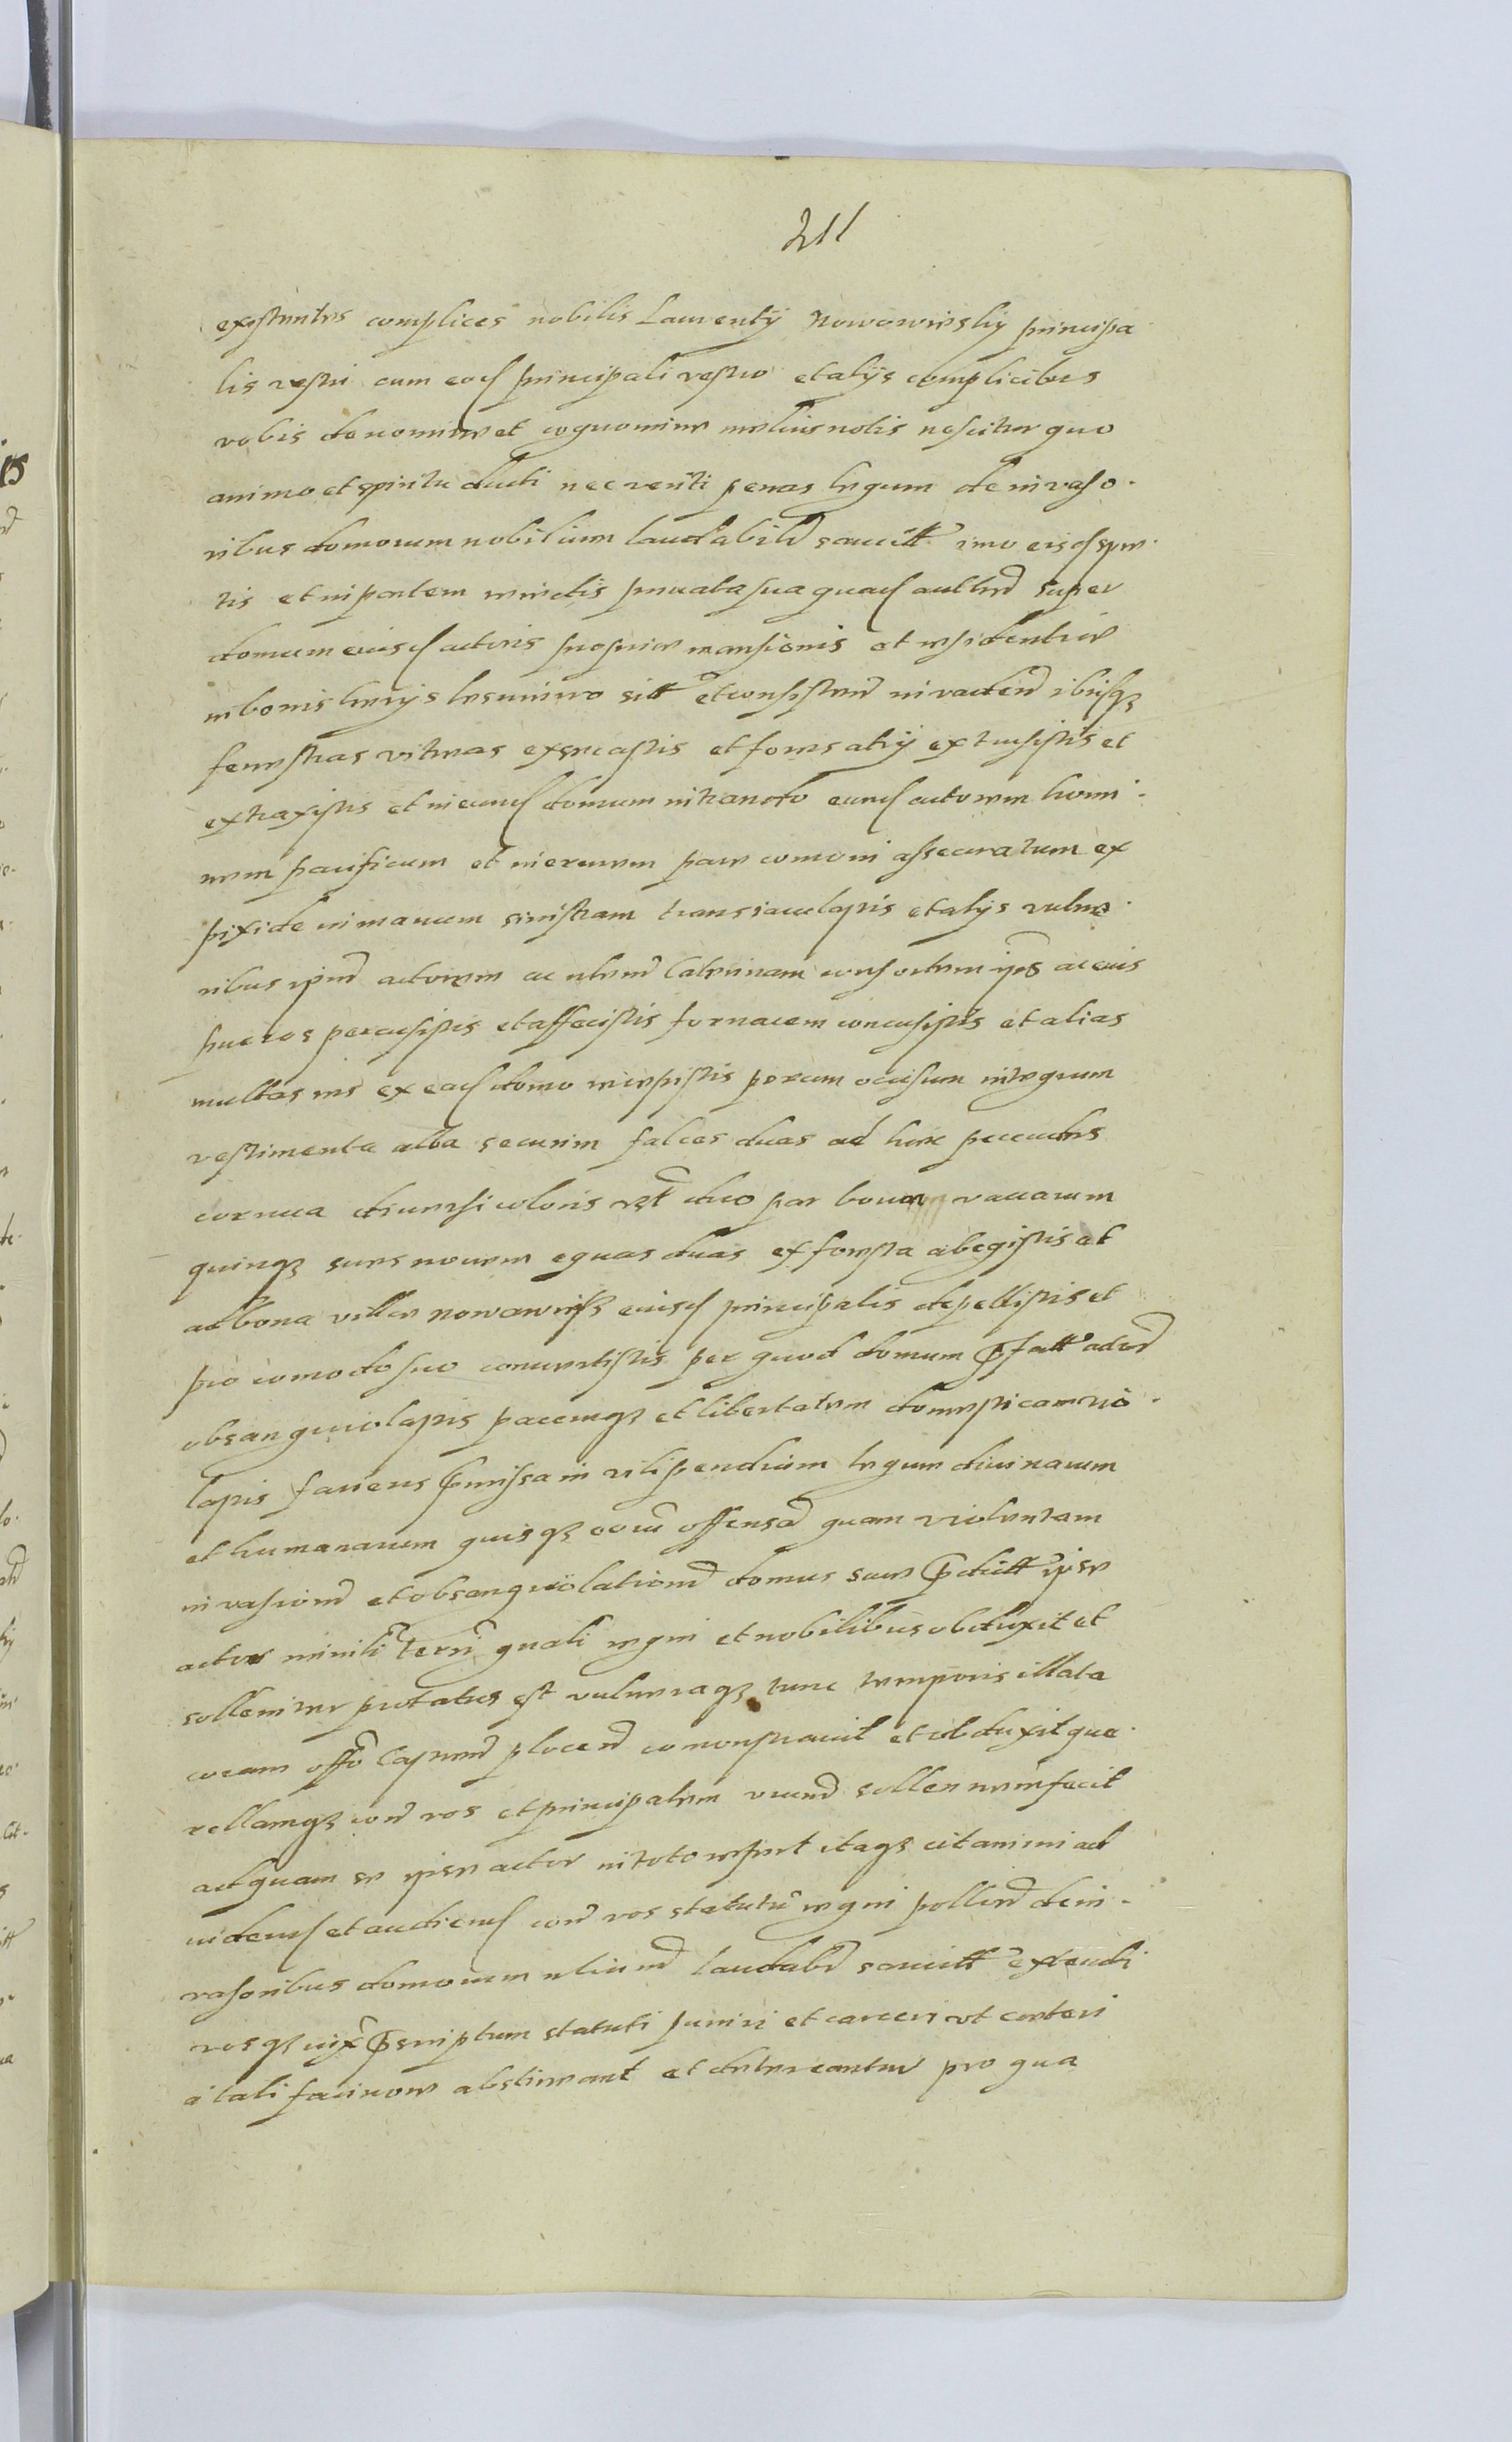 211
existentes complices nobilis Laurentÿ Nowowieyskÿ principa
lis vestri cum eod principali vestro et alÿs complicibus
vobis de nomine et cognomine melius notis nescitur quo
animo et spiritu ducti nec veriti penas legum de invaso
ribus domorum nobilium laudabilr sancitt imo eisd spre
tis et in partem reiectis privata sua quad auttte super
domum eiusd actoris propriae mansionis et residentiae
in bonis sitt et consisten invaden ibiqz
fenestras vitreas exsecastis et fores atrÿ extrusistis et
extraxistis et in eand domum intrando eund actorem homi
nem pacificum et inermem pace comoni assecuratum ex
pixide in manum sinistram transiaculastis et alÿs vulne
ribus ipm actorem ac Catrinam consortem ips ac eius
pueros percussistis et affecistis fornacem concussistis et alias
multas res ex ead domo recepistis porcum occisum integrum
vestimenta alba securim falces duas ad hunc pecudes
cornua diversi coloris vzt duo par boum vaccarum
quinqz sues novem equas duas ex foresta abegistis et
ad bona villae Nowawiesz eiusd principalis depellistis et
pro comodo suo convertistis per quod domum pfatt actor
obsanguiolastis pacemqz et libertatem domesticam vio
lastis faciens pmissa in vilipendium legum divinarum
et humanarum offensa quam violentam
invasione et obsanguiolatione domus suae pdictt ipse
actor ministi terri quali regni et nobilibus obduxit et
solleniter protatus est vulneraqz tunc temporis illata
coram offo Castren plocen comonstravit et obduxit que
rellamqz con vos et principalem vrum sollennem fecit
ad quam se ipse actor in toto refert itaqz citamini ad
vidend et audiend con vos statutu regni pollie de in
vasoribus domorum nlium laudabr sancitt extendi
vosqz iux pscriptum statuti puniri et carceri ut ceteri
a tali facinore abstineant et deterreantur pro qua